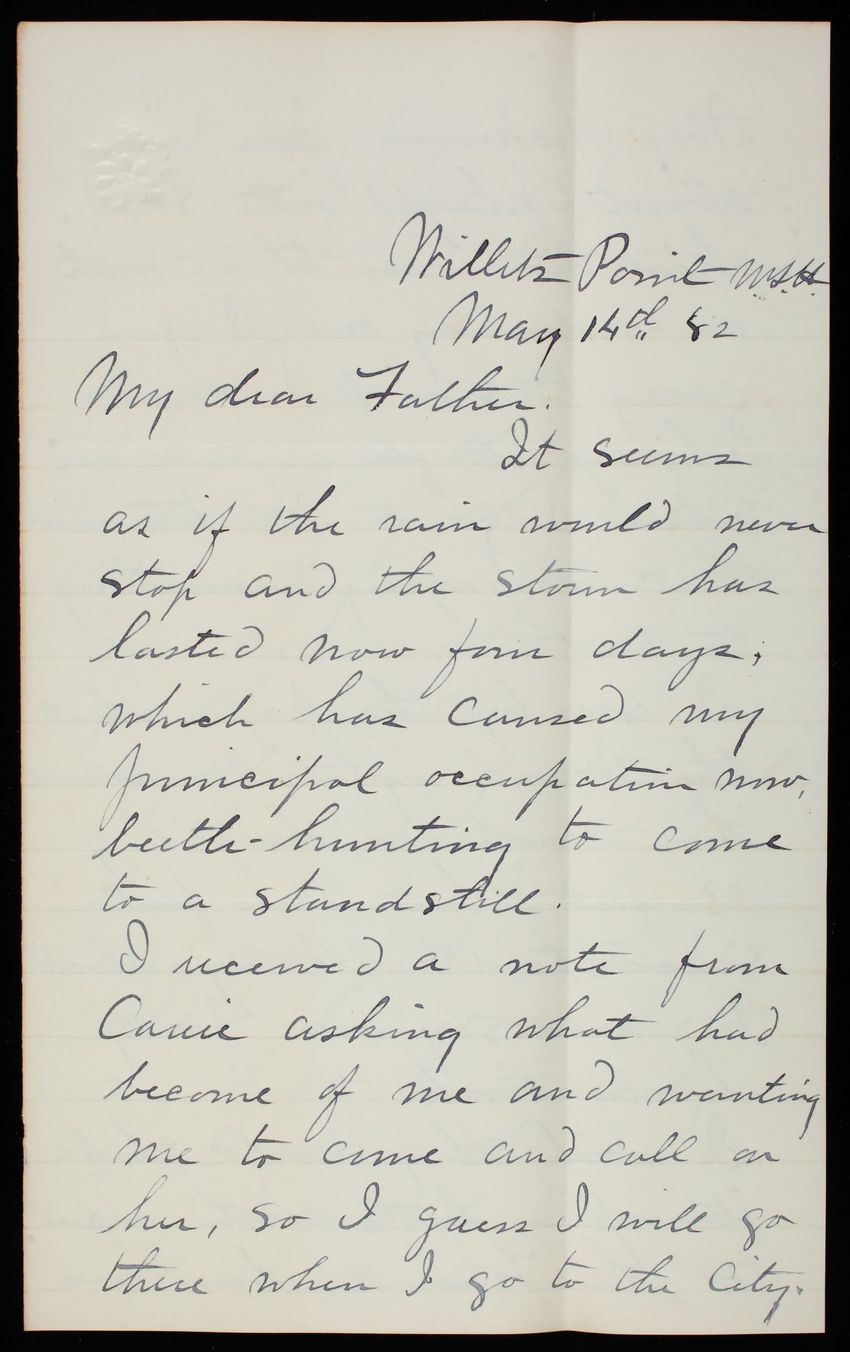 Willets Point N.Y.H.
May 14th 82
My dear Father.
It seems
as if the rain would never
stop and the storm has
lasted now four days,
which has caused my
principal occupation now,
beetle-hunting to come
to a standstill.
I received a note from
Carrie asking what had
become of me and wanting
me to come and call on
her, so I guess I will go
there when I go to the City.